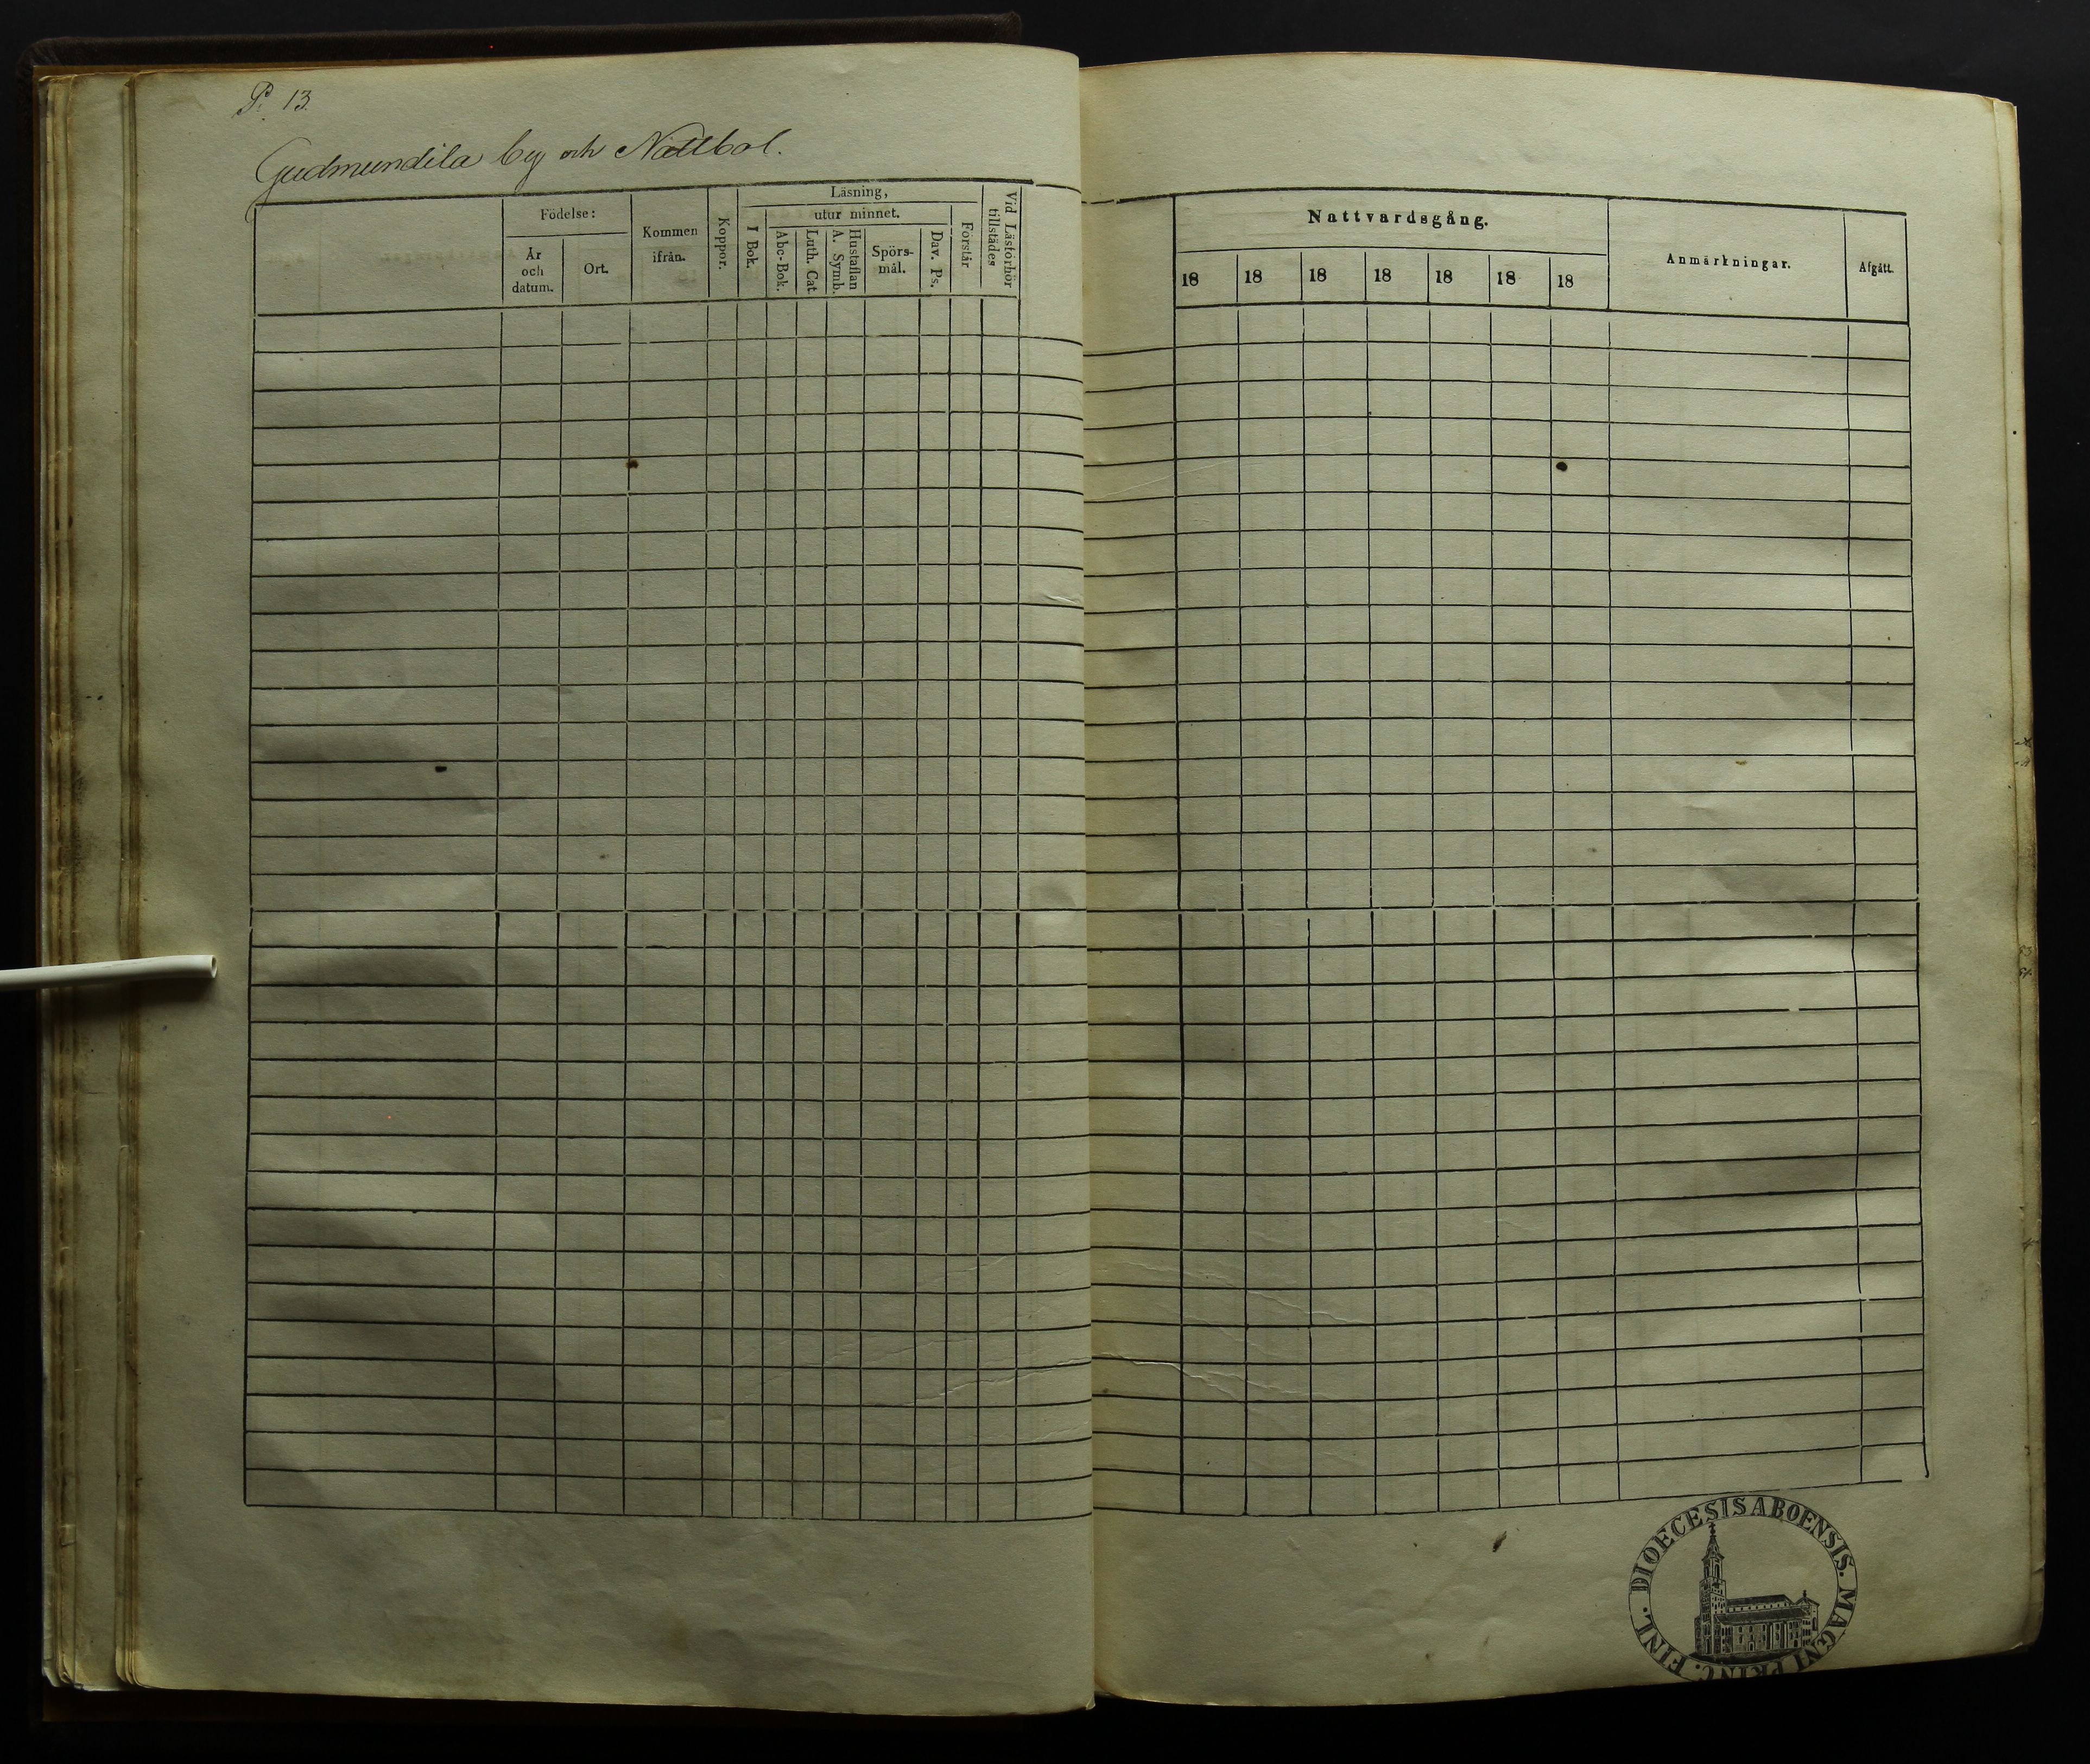 P. 13.
Gudmundila by och Nattbol.
Födelse:
År
och
datum.
Ort.
Kommen
ifrån.
Koppor.
Läsning,
utur minnet.
I Bok.
Abc-Bok.
Luth. Cat
Hustaflan
A. Symb.
Spörs-
mål.
Dav. Ps.
Förstår
Vid Läsförhör
tillstädes
Nattvardsgång.
18 18 18 18 18 18 18
Anmärkningar.
Afgått.
DIOECESIS ABOENSIS. MAGNI PRINC. FINL.